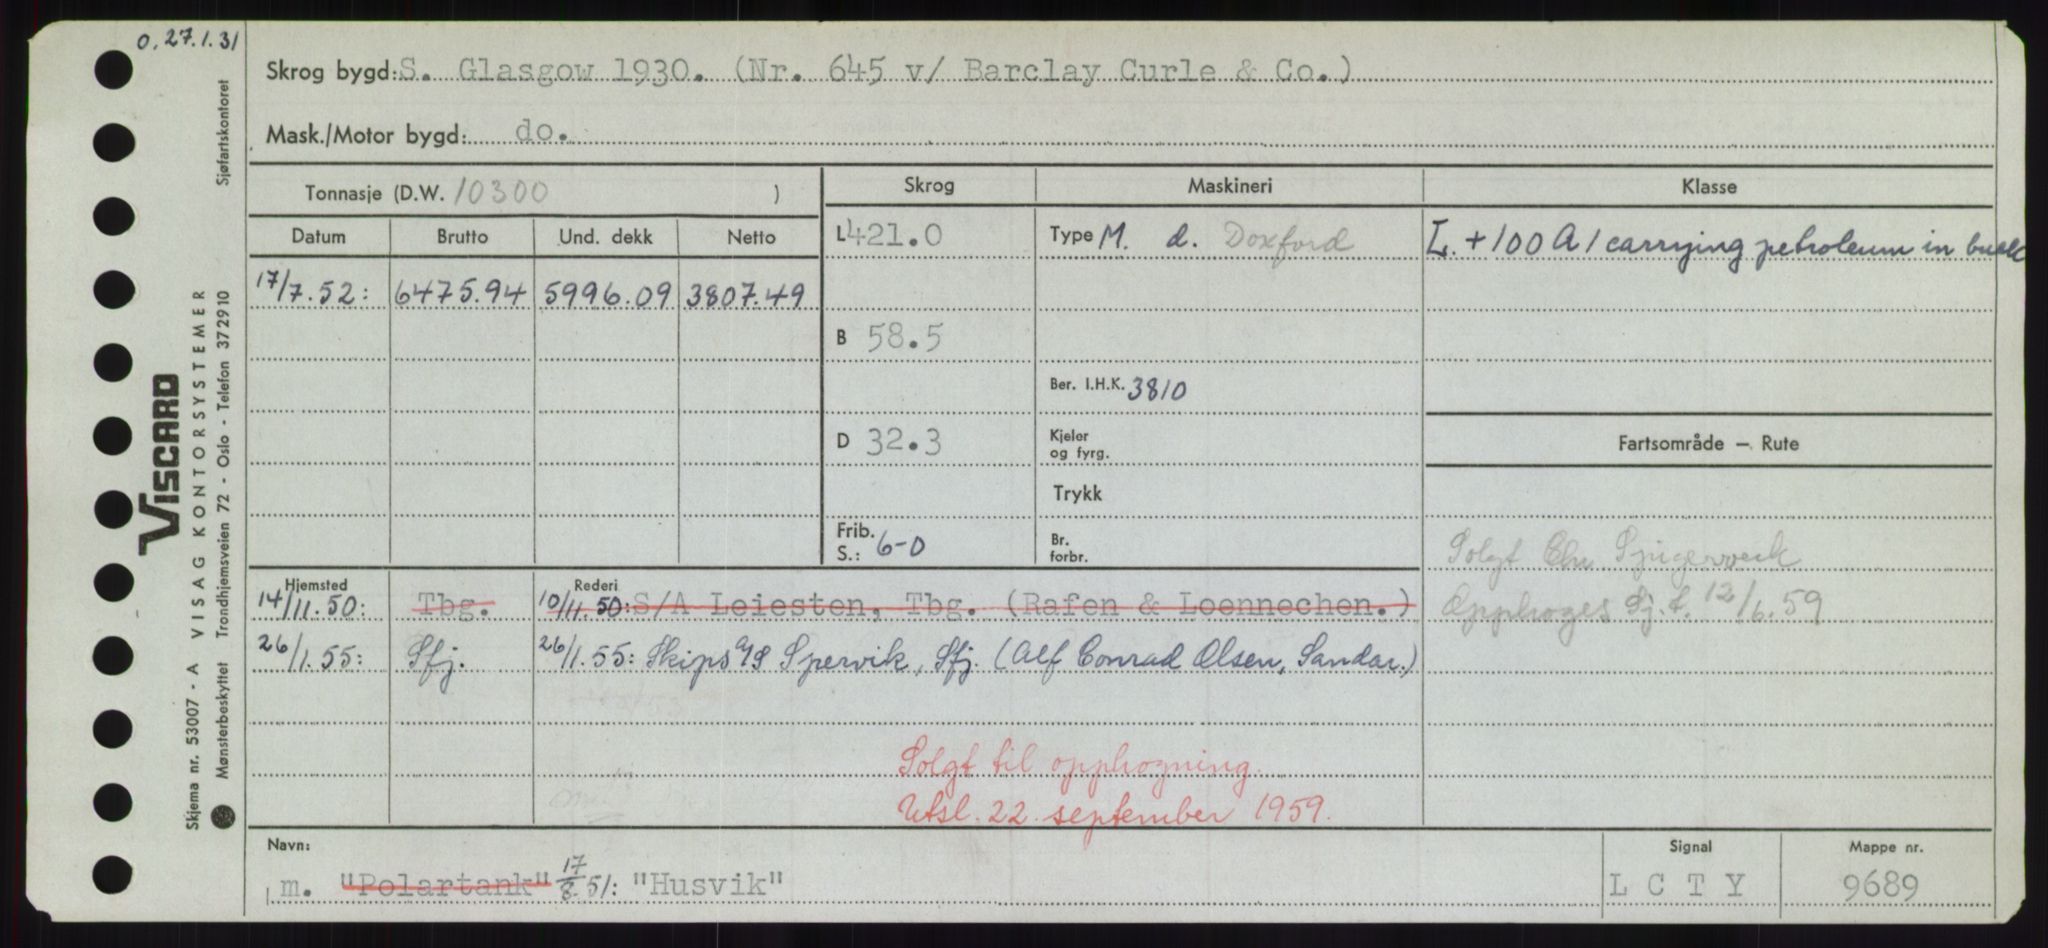 O, 27.1.31
Skrog bygd: S. Glasgow 1930. (Nr. 645 v/ Barclay Curle & Co.)
Mask./Motor bygd: do.
Tonnasje (D.W. 10300 )
Skrog
Maskineri
Klasse
Datum Brutto Und. dekk Netto
L 421.0
Type M. d. Doxford
L. +100 A 1 carrying petroleum in bulk
17/7.52: 6475.94 5996.09 3807.49
B 58.5
Ber. I.H.K. 3810
D 32.3
Kjeler
og fyrg.
Fartsområde — Rute
Trykk
Frib.
S.: 6-0
Br.
forbr.
Solgt Chr
Hjemsted
Rederi
14/11.50: Tbg. 10/11.50: S/A Leiesten, Tbg. (Rafen & Loennechen.)
Opphogges Sj.t. 12/6.59
26/1.55: Sfj. 26/1.55: Skips A/S Spervik, Sfj. (Alf Conrad Olsen, Sandar.)
Solgt til opphogning.
Utsl. 22. september 1959.
Navn:
m. "Polartank" 17/8.51: "Husvik"
Signal
L C T Y
Mappe nr.
9689
Viscard
Skjema nr. 53007 - A VISAG KONTORSYSTEMER
Mønsterbeskyttet Trondhjemsveien 72 - Oslo - Telefon 372910
Sjøfartskontoret